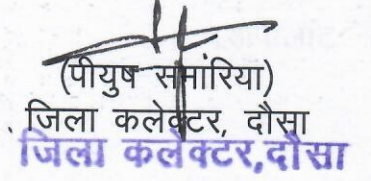 (पीयुष समांरिया)
जिला कलेक्टर, दौसा
जिला कलेक्टर,दौसा